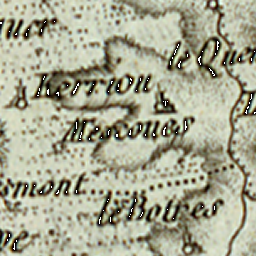 quer
le Quer
Kerriou
Mescoues
smont
le Botres